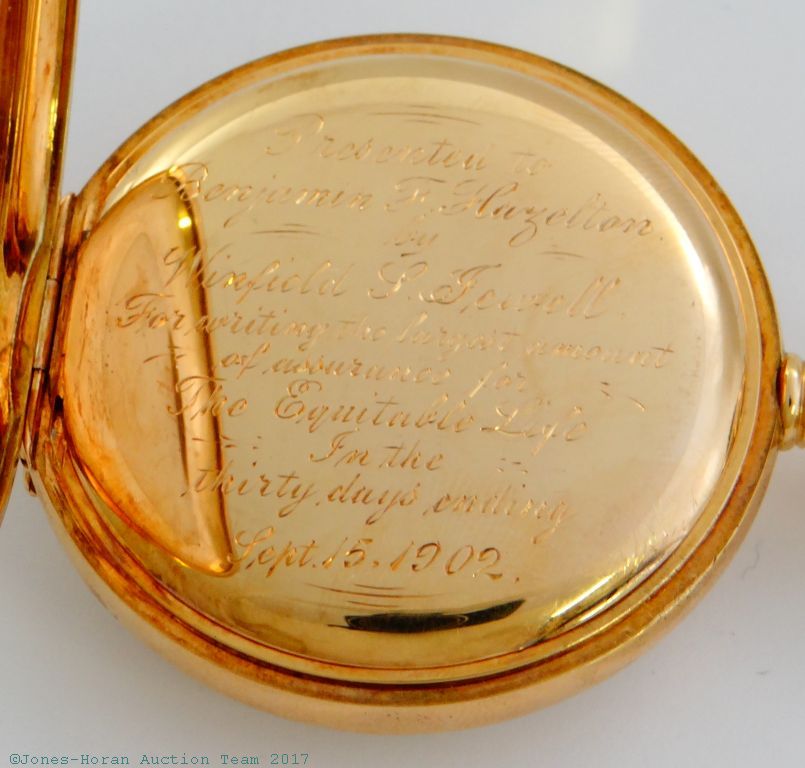 Presented to
Benjamin F. Hazelton.
by
Winfield S. Jewell.
For writing the largest amount
of assurance for
The Equitable Life
In the
thirty days ending
Sept. 15. 1902.
©Jones-Horan Auction Team 2017